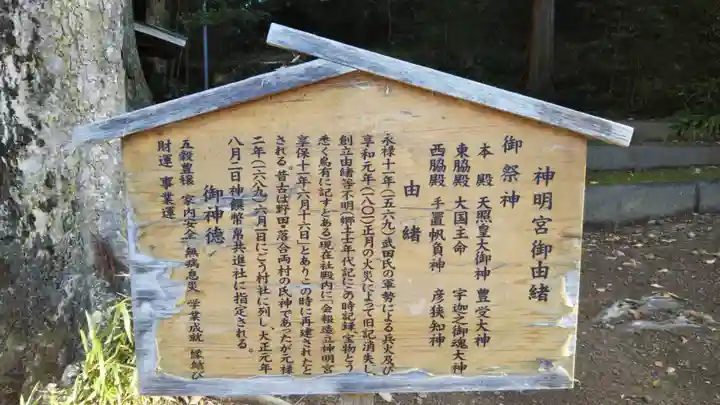 神明宮御由緒
御祭神
本殿 天照皇大御神 豊受大神
東脇殿 大国主命 宇迦之御魂大神
西脇殿 手置帆負神 彦狭知神
由緒
永禄十一年(一五六九)武田氏の軍勢による兵火及び
享和元年(一八〇一)正月の火災によって旧記消失し、
創立由緒等不明(郷土年代記にこの時記録、宝物とう
悉く烏有に記すとある)現在社殿内に「會報造立神明宮
享保十一年八月十六日」とあり、この時に再建されたと
される。昔古は野田・落合両村の氏神であったが元禄
二年(一六八九)六月一日にごう村社に列し、大正元年
八月二日神饌幣帛共進社に指定される。
御神徳
五穀豊穣 家内安全 無病息災 学業成就 縁結び
財運 事業運